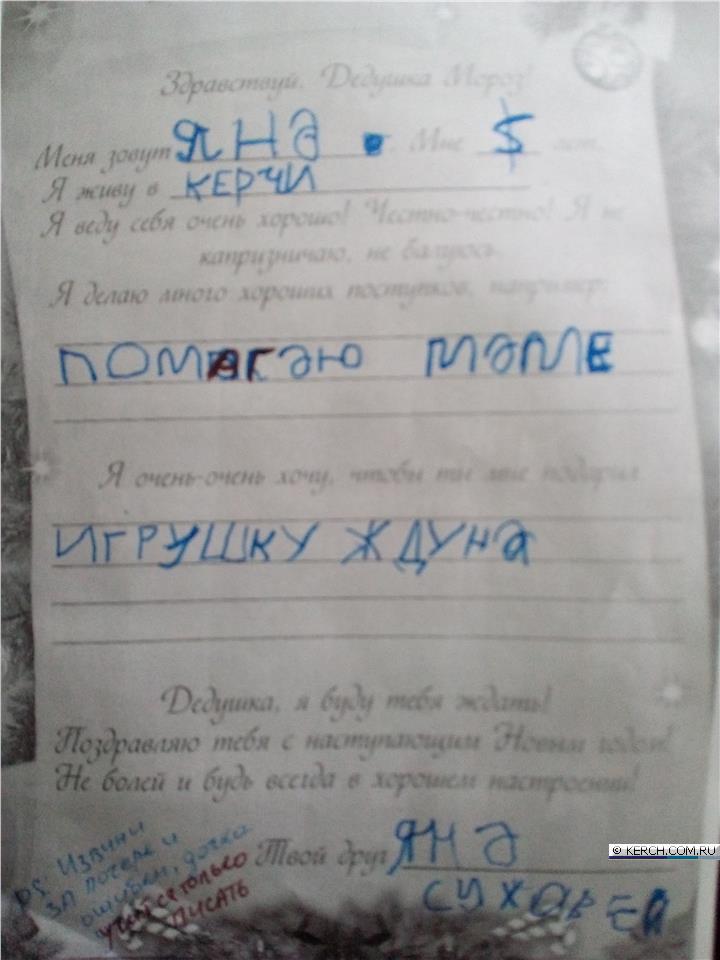 Здравствуй, Дедушка Мороз!
Меня зовут ЯНА. Мне 5 лет.
Я живу в КЕРЧИ
Я веду себя очень хорошо! Честно-честно! Я не
капризничаю, не балуюсь.
Я делаю много хороших поступков, например:
ПОМАГАЮ МАМЕ
Я очень-очень хочу, чтобы ты мне подарил
ИГРУШКУ ЖДУНА
Дедушка, я буду тебя ждать!
Поздравляю тебя с наступающим Новым годом!
Не болей и будь всегда в хорошем настроении!
Твой друг ЯНА
СУХОВЕЙ
PS: Извини
за почерк и
ошибки, дочка
учится только
ПИСАТЬ
© KERCH.COM.RU